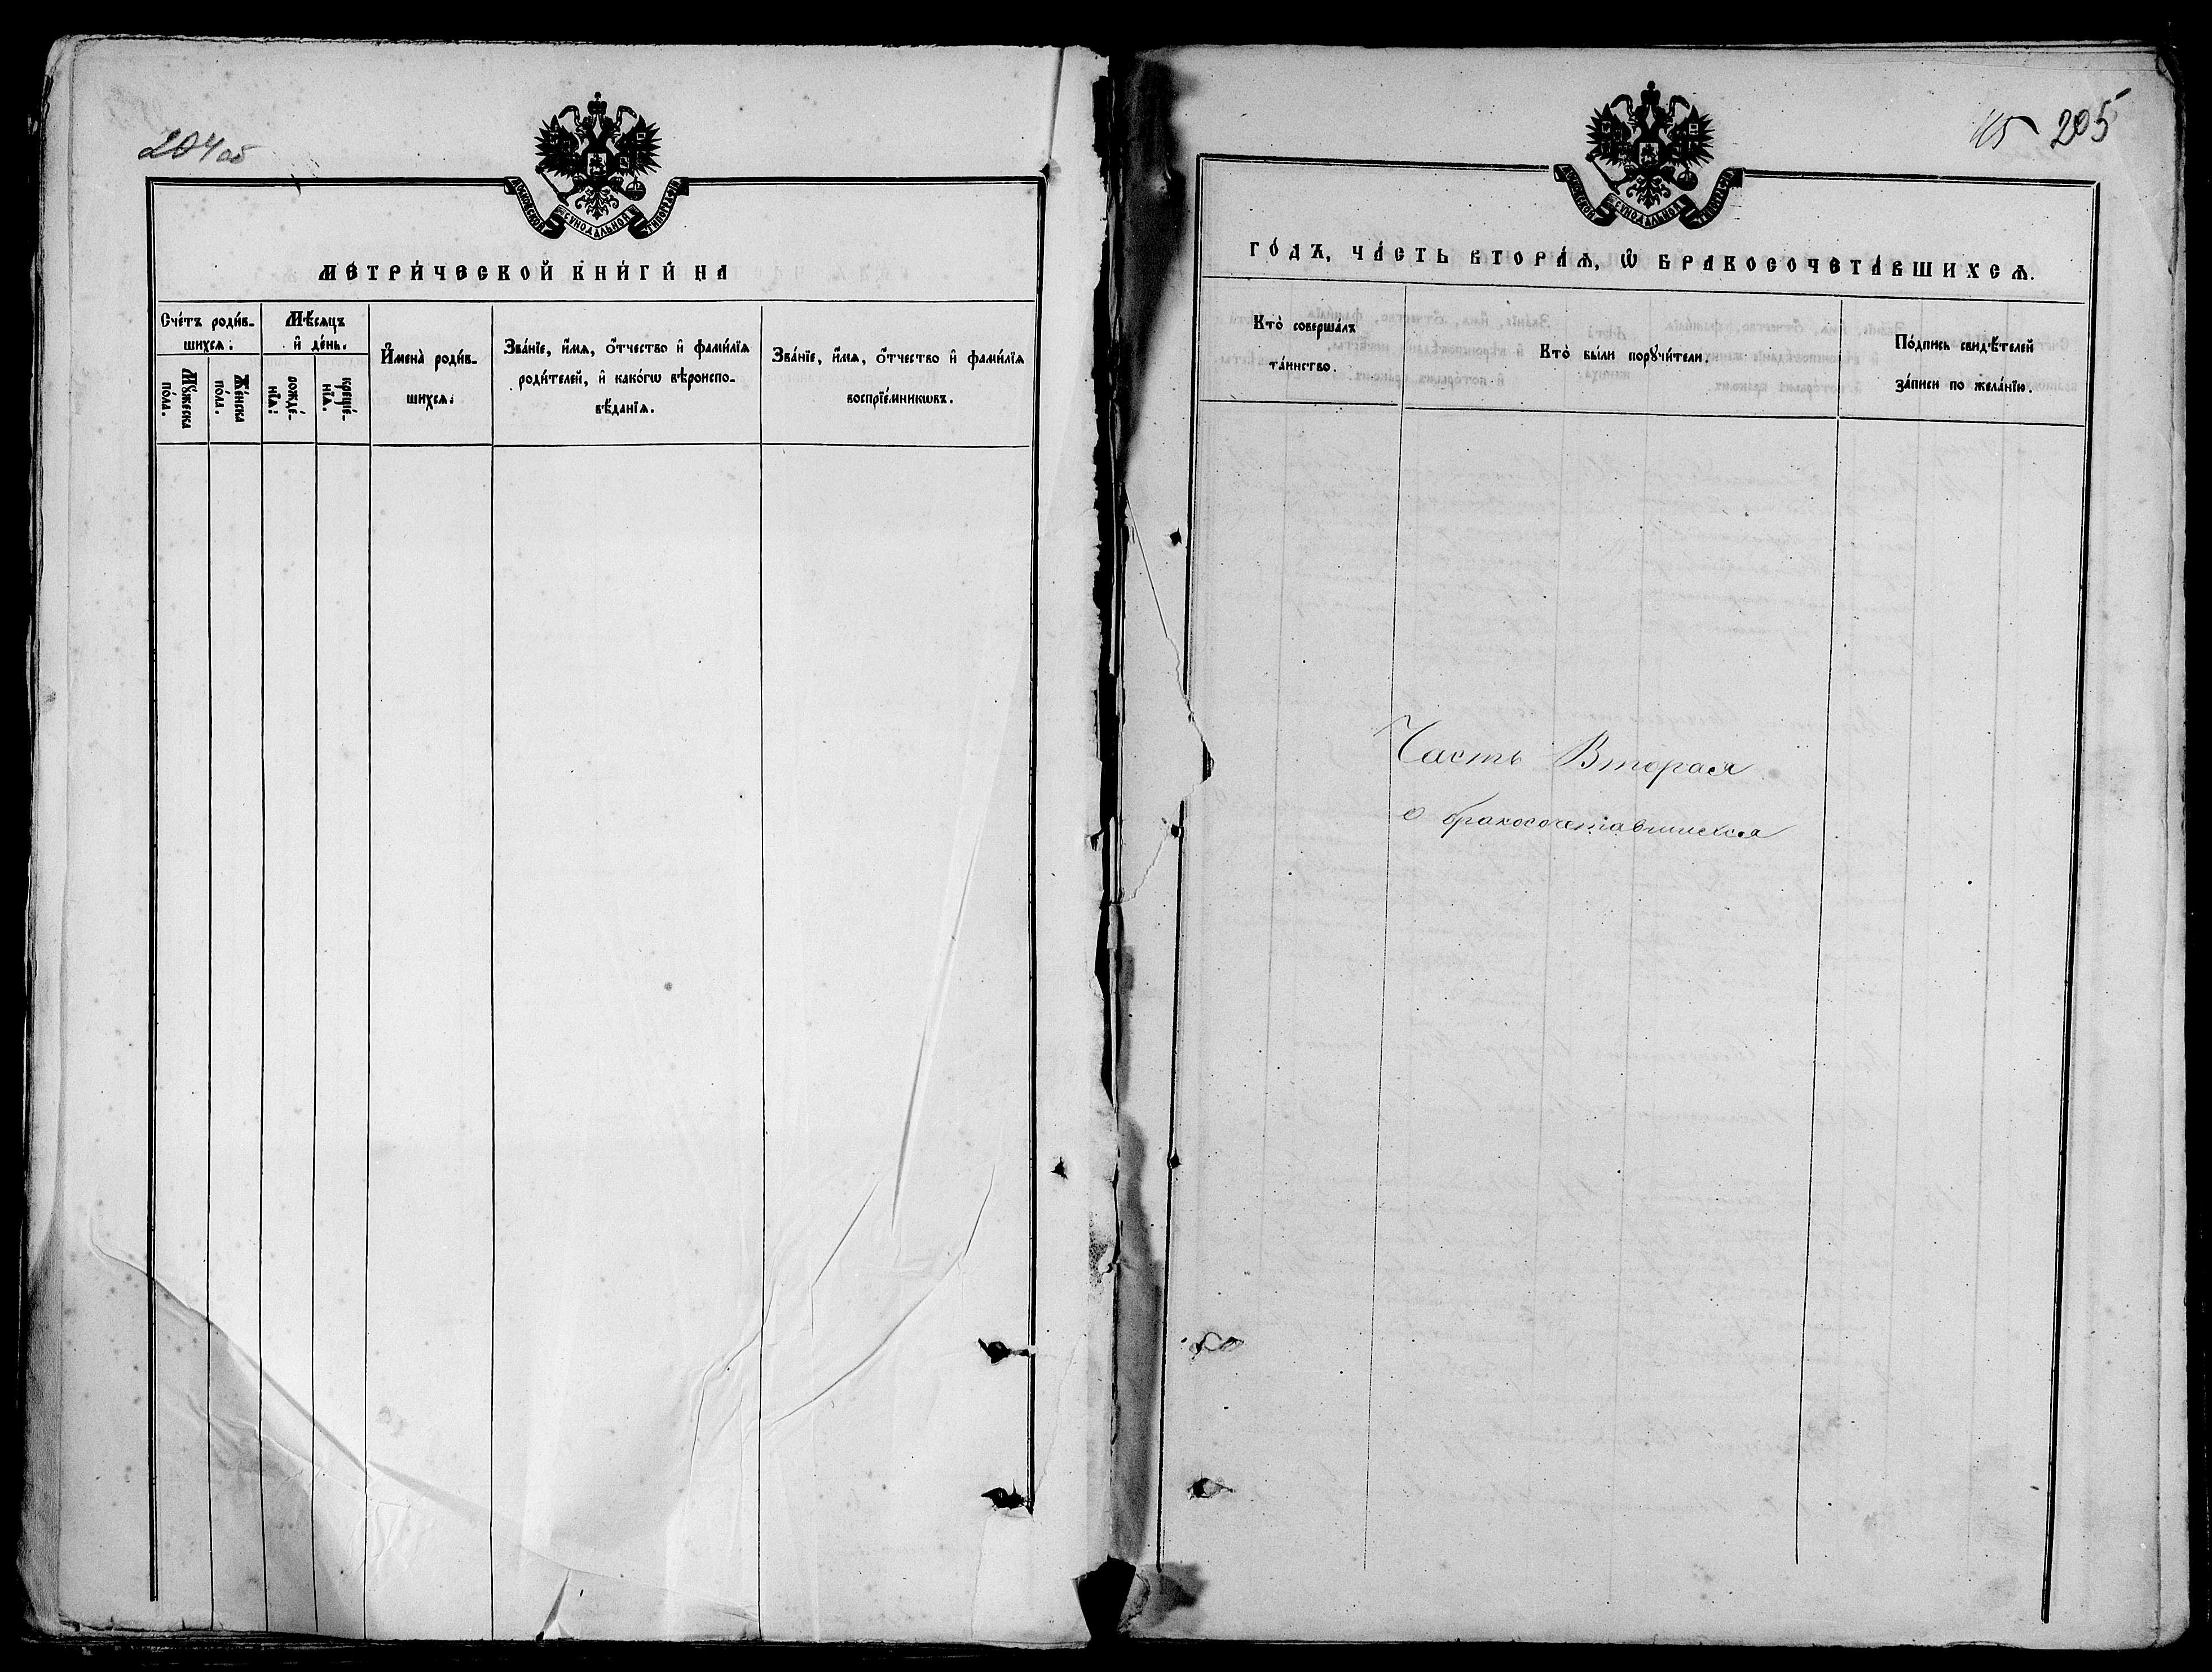 204 об
МОСКОВСКОЙ СУНОДАЛЬНОЙ ТИПОГРАФІИ
МЕТРИ́ЧЕСКОЙ КНИ́ГИ НА
Сче́тъ роди́в-
шихсѧ:
Мѣ́сѧцъ
и҆ де́нь.
Мꙋ́жеска
по́ла.
Же́нска
по́ла.
рожде́-
нїѧ:
креще́-
нїѧ.
И҆мена̀ роди́в-
шихсѧ:
Зва́нїе, и҆́мѧ, ѻ҆́тчество и҆ фами́лїѧ
роди́телей, и҆ како́гѡ вѣроиспо-
вѣ́данїѧ.
Зва́нїе, и҆́мѧ, ѻ҆́тчество и҆ фами́лїѧ
воспрїе́мникѡвъ.
115 205
МОСКОВСКОЙ СУНОДАЛЬНОЙ ТИПОГРАФІИ
ГО́ДЪ, ЧА́СТЬ ВТОРА́Ѧ, Ѡ҆ БРАКОСОЧЕТА́ВШИХСѦ.
Кто̀ соверша́лъ
та́инство.
Кто̀ бы́ли порꙋчи́тели.
По́дпись свидѣ́телей
за́писи по жела́нїю.
Часть Вторая
о бракосочетавшихся